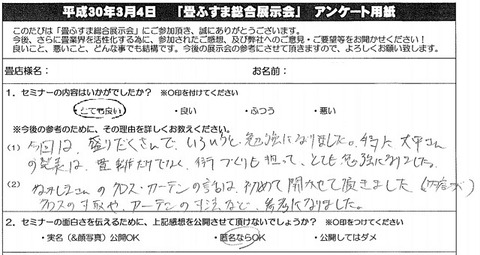 平成30年3月4日 「畳ふすま総合展示会」 アンケート用紙
このたびは「畳ふすま総合展示会」にご参加頂き、誠にありがとうございます。
今後、さらに畳業界を活性化する為に、参加されたご感想、及び弊社へのご意見・ご要望等をお聞かせください!
良いこと、悪いこと、どんな事でも結構です。今後の展示会の参考にさせて頂きますので、よろしくお願い致します。
畳店様名: お名前:
1. セミナーの内容はいかがでしたか? ※○印を付けてください
・とても良い ・良い ・ふつう ・悪い
※今後の参考のために、その理由を詳しくお教えください。
(1) 今回は、盛りだくさんで、いろいろと勉強になりました。特に大平さん
の発表は、畳制作だけでなく、街づくりも担って、とても勉強になりました。
(2) さんのクロス・カーテンの話は、初めて聞かせて頂きました
クロスの寸取や、カーテンの寸法など、参考になりました。
2. セミナーの面白さを伝えるために、上記感想を公開させて頂けないでしょうか? ※○印をつけてください
・実名(&顔写真)公開OK ・匿名ならOK ・公開してはダメ